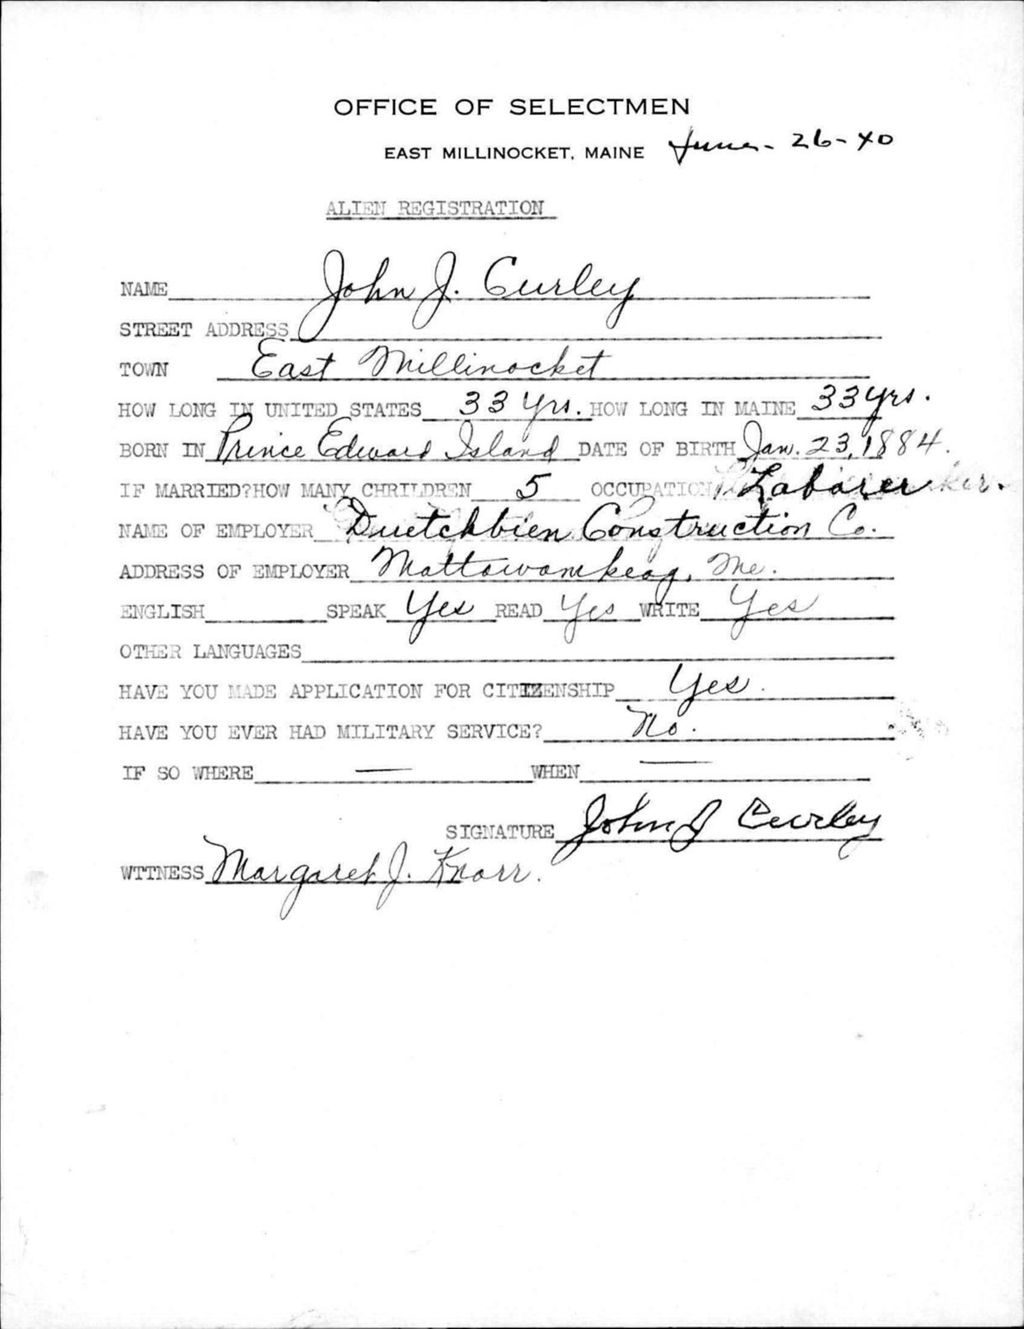 OFFICE OF SELECTMEN
EAST MILLINOCKET, MAINE June - 26 - 40
ALIEN REGISTRATION
NAME John J. Curley
STREET ADDRESS
TOWN East Millinocket
HOW LONG IN UNITED STATES 33 Yrs. HOW LONG IN MAINE 33 yrs.
BORN IN Prince Edward Island DATE OF BIRTH Jan. 23, 1884.
IF MARRIED? HOW MANY CHRILDREN 5 OCCUPATION Laborer
NAME OF EMPLOYER Duetchbien Construction Co.
ADDRESS OF EMPLOYER Mattawamkeag, Me.
ENGLISH SPEAK Yes READ Yes WRITE Yes
OTHER LANGUAGES
HAVE YOU MADE APPLICATION FOR CITIZENSHIP Yes.
HAVE YOU EVER HAD MILITARY SERVICE? No.
IF SO WHERE — WHEN —
SIGNATURE John J Curley
WITNESS Margaret J. Knorr.